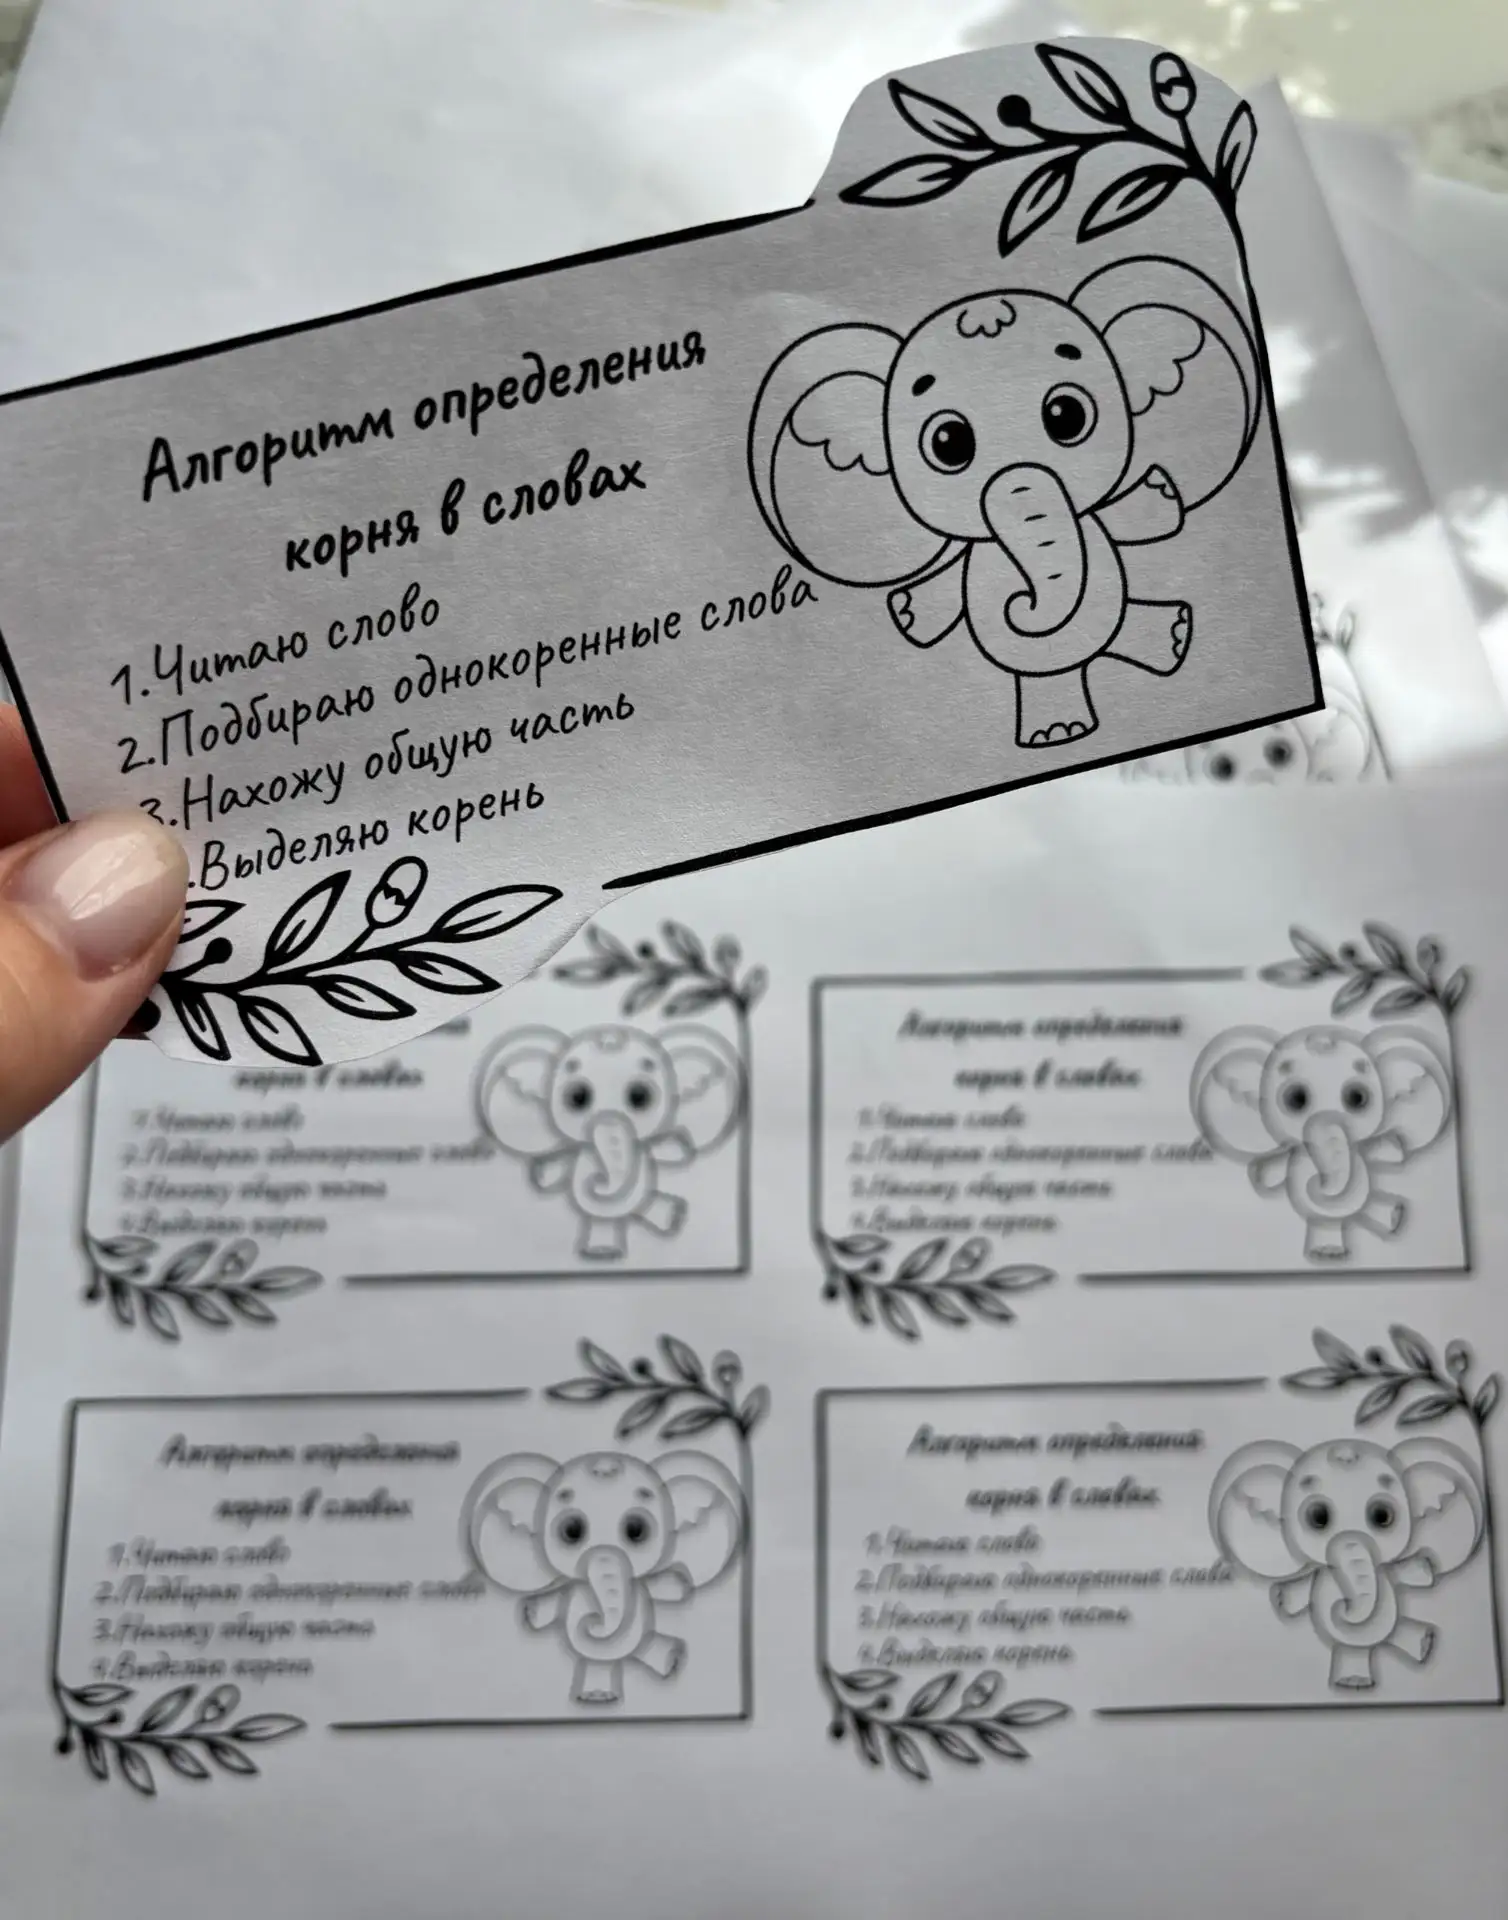 Алгоритм определения
корня в словах
1.Читаю слово
2.Подбираю однокоренные слова
3.Нахожу общую часть
.Выделяю корень
корня в словах
1.Читаю слово
2.Подбираю однокоренные слова
3.Нахожу общую часть
4.Выделяю корень
Алгоритм определения
корня в словах
1.Читаю слово
2.Подбираю однокоренные слова
3.Нахожу общую часть
4.Выделяю корень
Алгоритм определения
корня в словах
1.Читаю слово
2.Подбираю однокоренные слова
3.Нахожу общую часть
4.Выделяю корень
Алгоритм определения
корня в словах
1.Читаю слово
2.Подбираю однокоренные слова
3.Нахожу общую часть
4.Выделяю корень